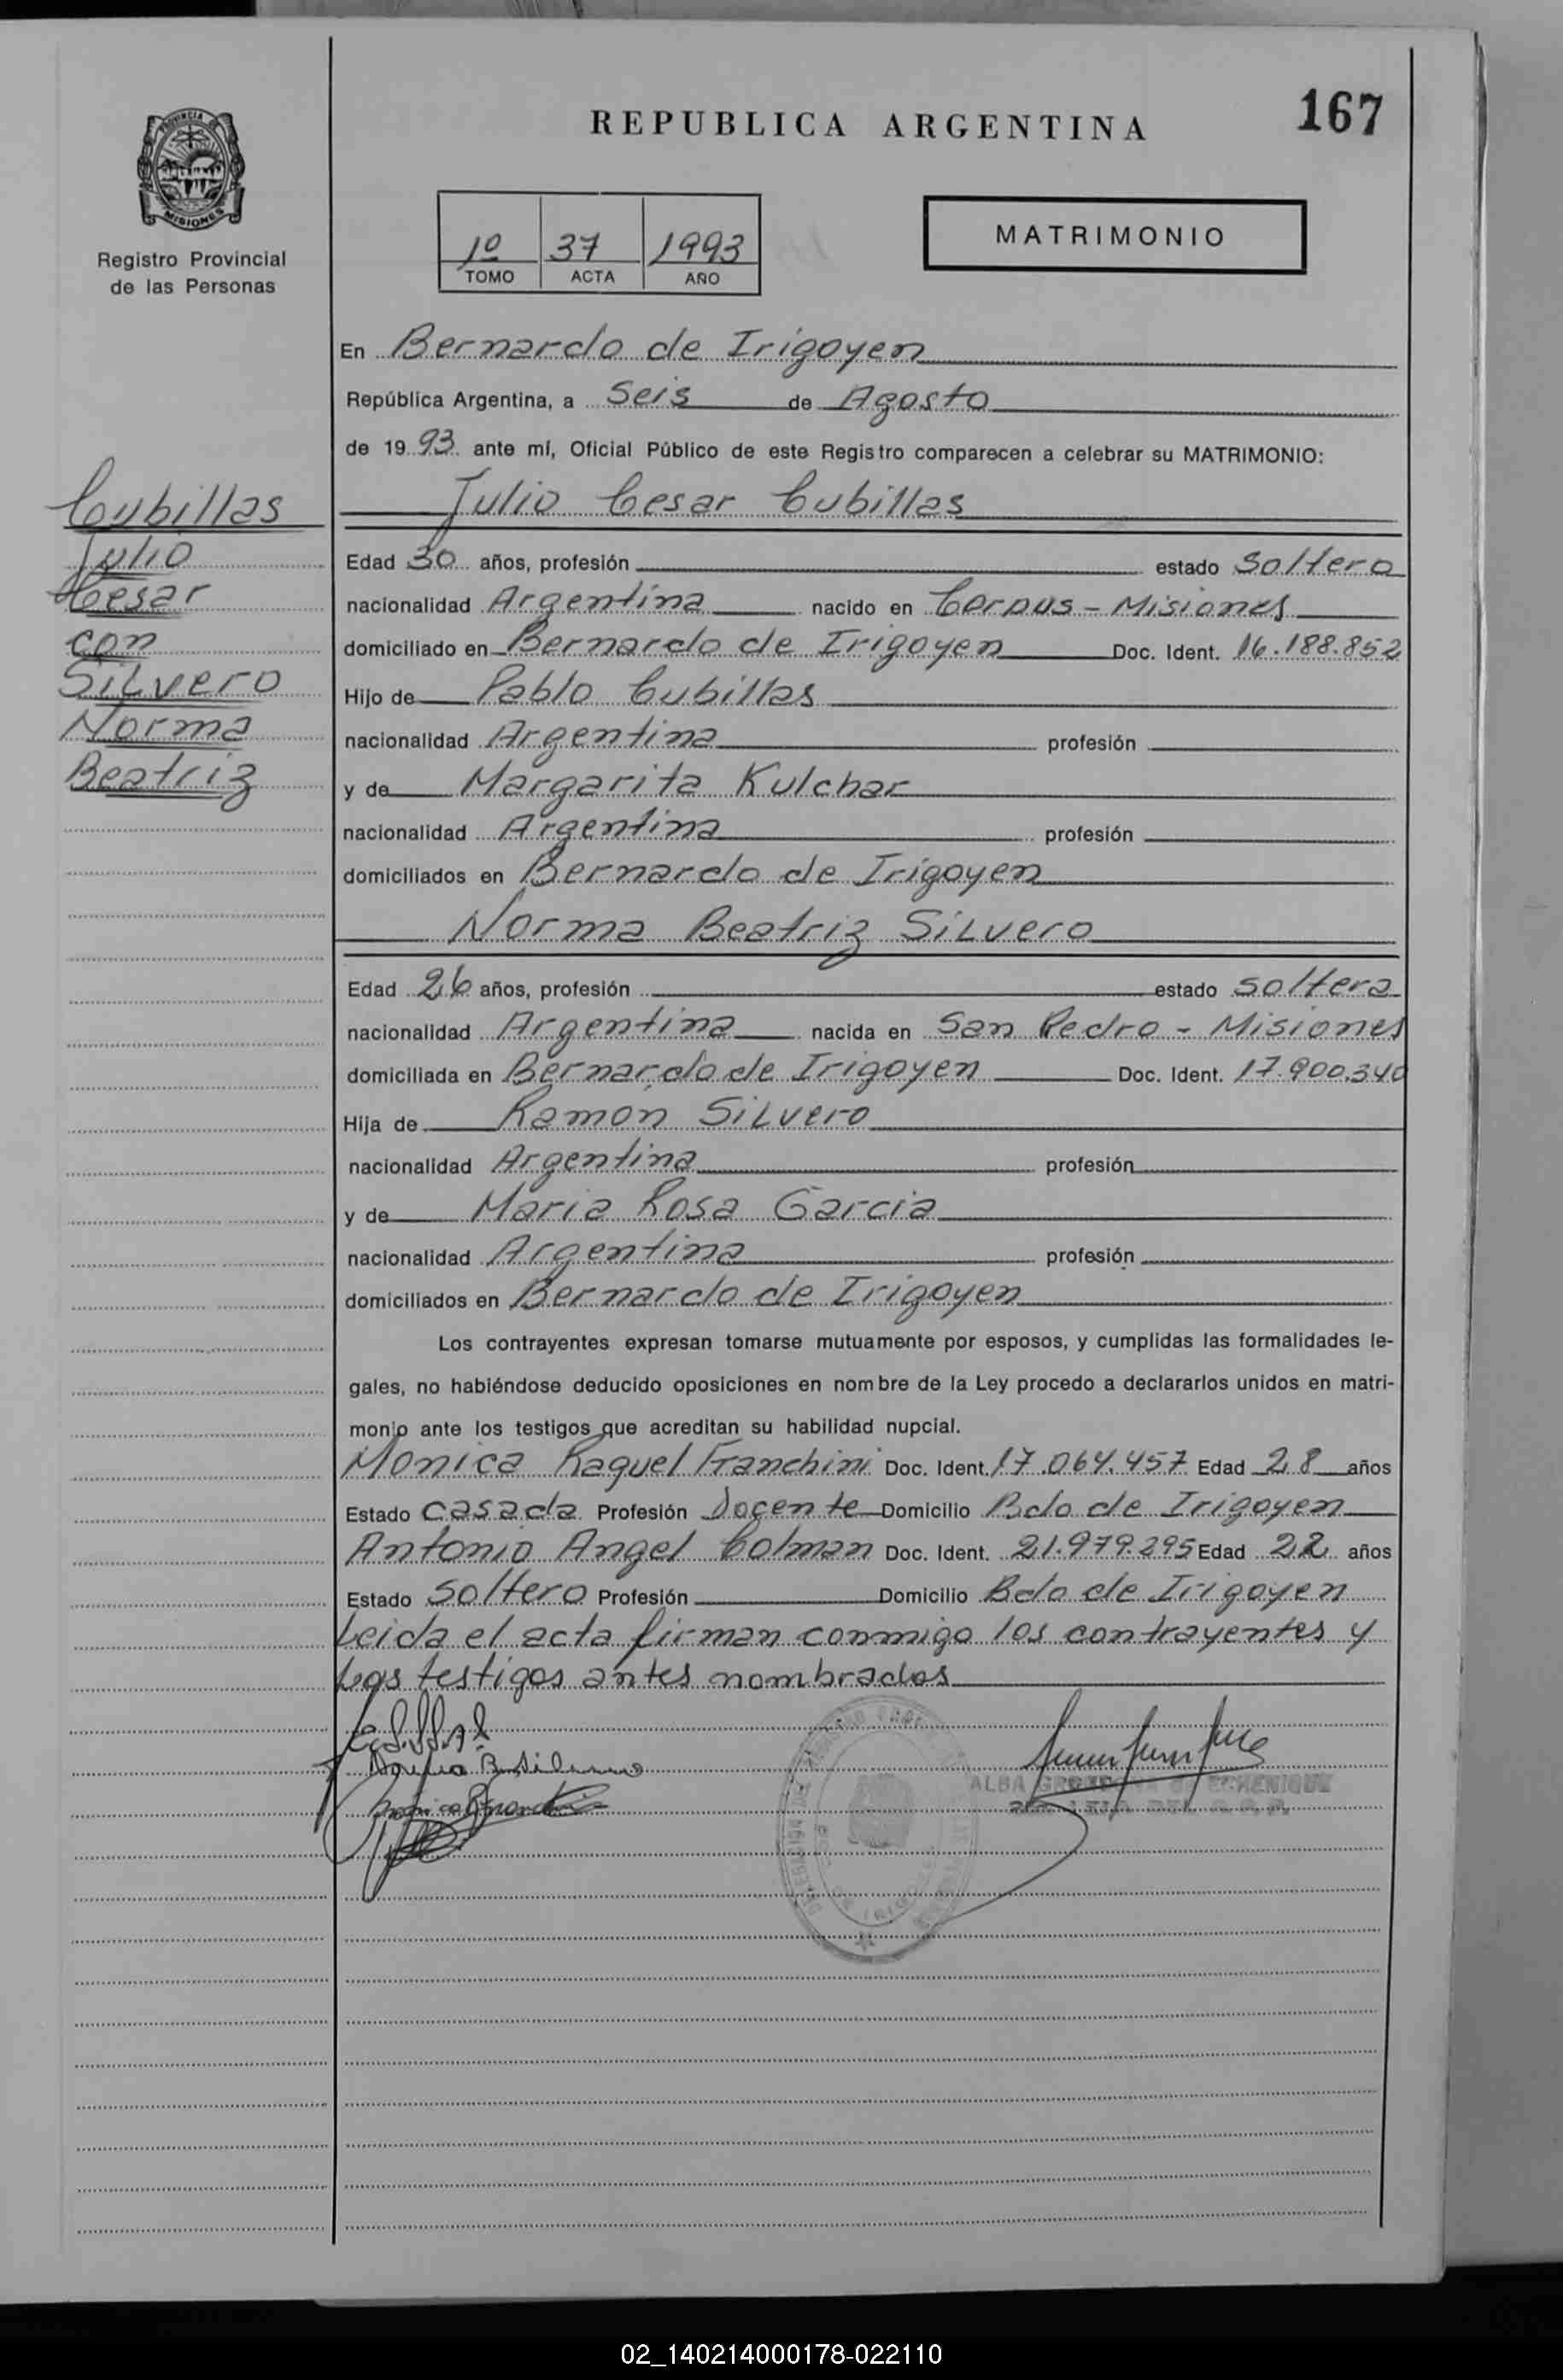 REPUBLICA ARGENTINA
167
PROVINCIA DE
MISIONES
Registro Provincial
de las Personas
1º 37 1993
TOMO ACTA AÑO
MATRIMONIO
En Bernardo de Irigoyen
República Argentina, a Seis de Agosto
de 19 93 ante mí, Oficial Público de este Registro comparecen a celebrar su MATRIMONIO:
Julio Cesar Cubillas
Cubillas
Julio
Cesar
con
Silvero
Norma
Beatriz
Edad 30 años, profesión estado Soltero
nacionalidad Argentina nacido en Corpus - Misiones
domiciliado en Bernardo de Irigoyen Doc. Ident. 16.188.852
Hijo de Pablo Cubillas
nacionalidad Argentina profesión
y de Margarita Kulchar
nacionalidad Argentina profesión
domiciliados en Bernardo de Irigoyen
Norma Beatriz Silvero
Edad 26 años, profesión estado soltera
nacionalidad Argentina nacida en San Pedro - Misiones
domiciliada en Bernardo de Irigoyen Doc. Ident. 17.900.340
Hija de Ramón Silvero
nacionalidad Argentina profesión
y de Maria Rosa Garcia
nacionalidad Argentina profesión
domiciliados en Bernardo de Irigoyen
Los contrayentes expresan tomarse mutuamente por esposos, y cumplidas las formalidades le-
gales, no habiéndose deducido oposiciones en nombre de la Ley procedo a declararlos unidos en matri-
monio ante los testigos que acreditan su habilidad nupcial.
Monica Raquel Franchini Doc. Ident. 17.064.457 Edad 28 años
Estado casada Profesión Docente Domicilio Bdo de Irigoyen
Antonio Angel Colman Doc. Ident. 21.979.295 Edad 22 años
Estado Soltero Profesión Domicilio Bdo de Irigoyen
Leida el acta firman conmigo los contrayentes y
los testigos antes nombrados
ALBA DE ECHENIQUE
02_140214000178-022110